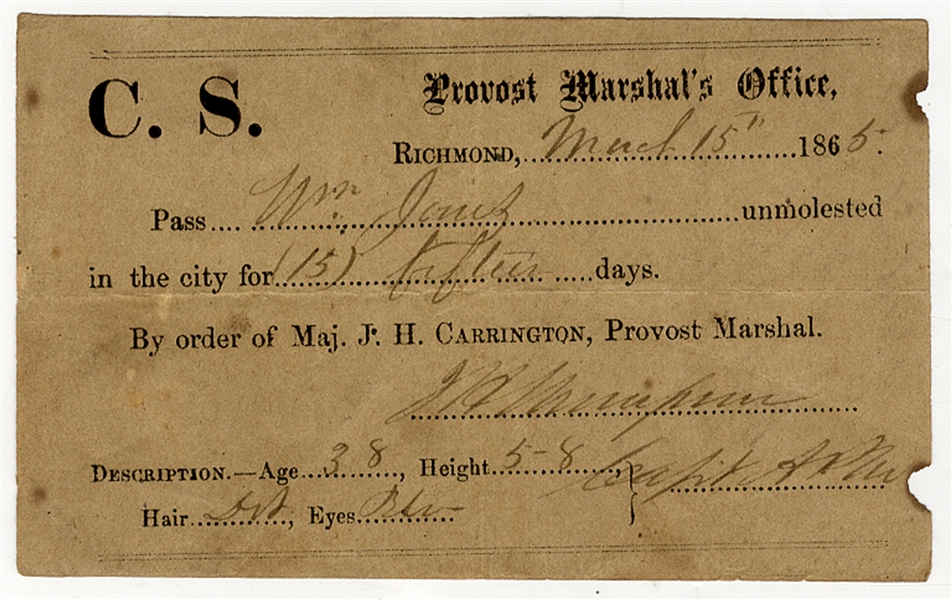 C. S. Provost Marshal's Office,
RICHMOND, March 15" 1865.
Pass Wm Jones unmolested
in the city for (15) fifteen days.
By order of Maj. J. H. CARRINGTON, Provost Marshal.
DESCRIPTION.—Age 38, Height 5-8,
Capt &
Hair Drk, Eyes Blu